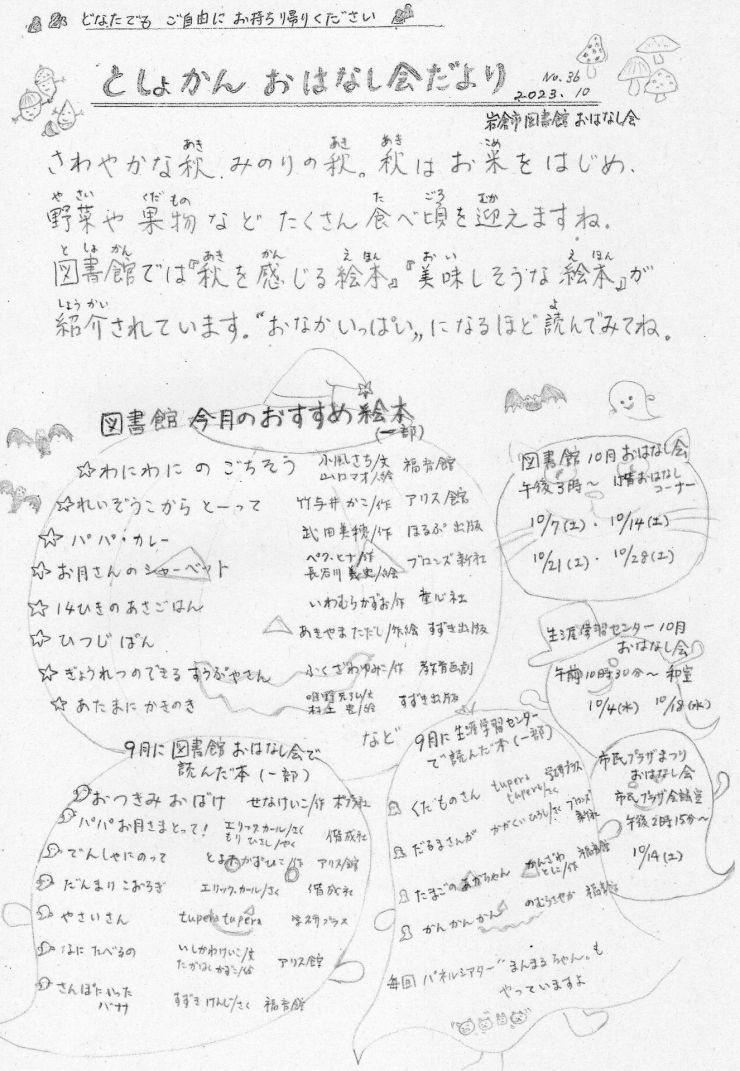 どなたでも ご自由に お持ち帰りください
としょかん おはなし会だより
No.36
2023.10
岩倉市図書館 おはなし会
さわやかな秋、みのりの秋。秋はお米をはじめ、
野菜や果物など たくさん食べ頃を迎えますね。
図書館では『秋を感じる絵本』『美味しそうな絵本』が
紹介されています。“おなかいっぱい„になるほど読んでみてね。
図書館 今月のおすすめ絵本
(一部)
☆わにわにのごちそう 小風さち/文 山口マオ/絵 福音館
☆れいぞうこから とーって 竹与井かこ/作 アリス館
☆パパ・カレー 武田美穂/作 ほるぷ出版
☆お月さんのシャーベット ペク・ヒナ/作 長谷川義史/絵 ブロンズ新社
☆14ひきのあさごはん いわむらかずお/作 童心社
☆ひつじぱん あきやまただし/作絵 すずき出版
☆ぎょうれつのできる すうぷやさん ふくざわゆみこ/作 教育画劇
☆あたまにかきのき 唯野元弘/文 村上豊/絵 すずき出版
など
図書館 10月おはなし会
午後3時~ け皆おはなしコーナー
10/7(土)・10/14(土)
10/21(土)・10/28(土)
生涯学習センター10月
おはなし会
午前10時30分~ 和室
10/4(水) 10/18(水)
市民プラザまつり
おはなし会
市民プラザ会議室
午後2時15分~
10/14(土)
9月に図書館おはなし会で
読んだ本(一部)
おつきみおばけ せなけいこ/作 ポプラ社
パパお月さまとって! エリック・カール/さく もりひさし/やく 偕成社
でんしゃにのって とよたかずひこ/作 アリス館
だんまりこおろぎ エリック・カール/さく 偕成社
やさいさん tupera tupera 学研プラス
なにたべるの いしかわけいこ/文 たかはしかずこ/絵 アリス館
さんぽにいった バナナ すずきけんじ/さく 福音館
9月に生涯学習センター
で読んだ本(一部)
くだものさん tupera tupera/さく 学研プラス
だるまさんが かがくいひろし/さく ブロンズ新社
たまごのあかちゃん かんざわとしこ/作 福音館
かんかんかん のむらさやか 福音館
毎回 パネルシアター“まんまるちゃん„も
やっていますよ